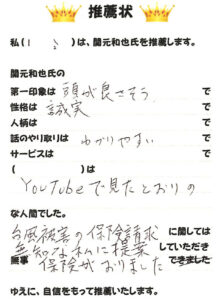 推薦状
私(　　)は、関元和也氏を推薦します。
関元和也氏の
第一印象は 頭が良さそう で
性格は 誠実 で
人柄は で
話のやり取りは わかりやすい で
サービスは で
(　　)は
YouTubeで見たとおりの
な人間でした。
台風被害の保険請求 に関しては
無知な私に提案 していただき
無事 保険がおりました できました
ゆえに、自信をもって推薦いたします。